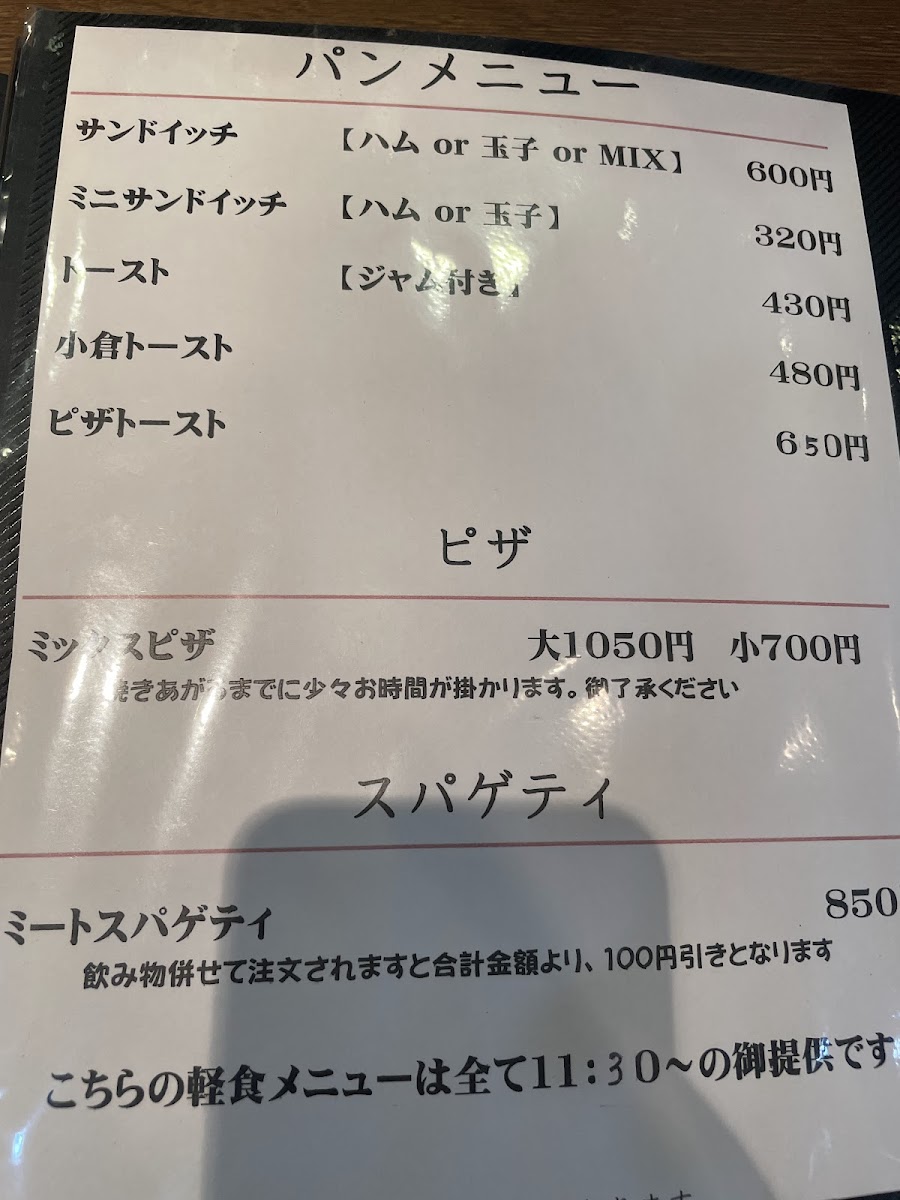 パンメニュー
サンドイッチ 【ハム or 玉子 or MIX】 600円
ミニサンドイッチ 【ハム or 玉子】 320円
トースト 【ジャム付き】 430円
小倉トースト 480円
ピザトースト 650円
ピザ
ミックスピザ 大1050円 小700円
焼きあがるまでに少々お時間が掛かります。御了承ください
スパゲティ
ミートスパゲティ 850
飲み物併せて注文されますと合計金額より、100円引きとなります
こちらの軽食メニューは全て11:30～の御提供です